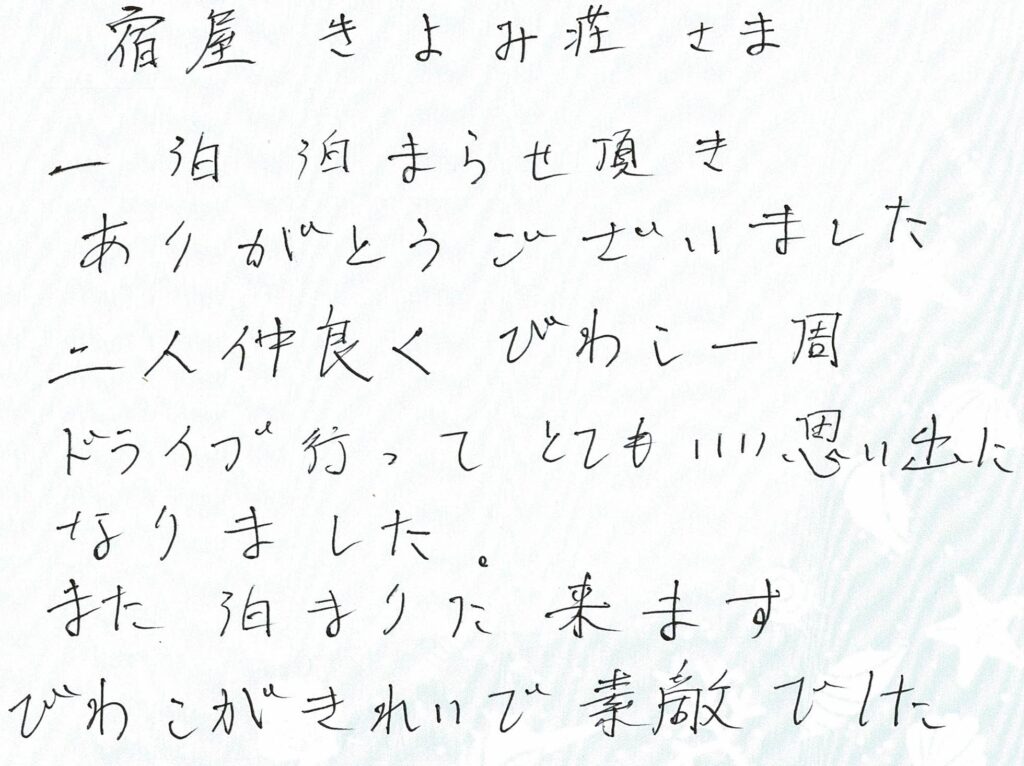 宿屋 きよみ荘 さま
一泊 泊まらせ頂き
ありがとうございました
二人仲良く びわこ一周
ドライブ行って とてもいい思い出に
なりました。
また 泊まりに 来ます
びわこがきれいで 素敵でした